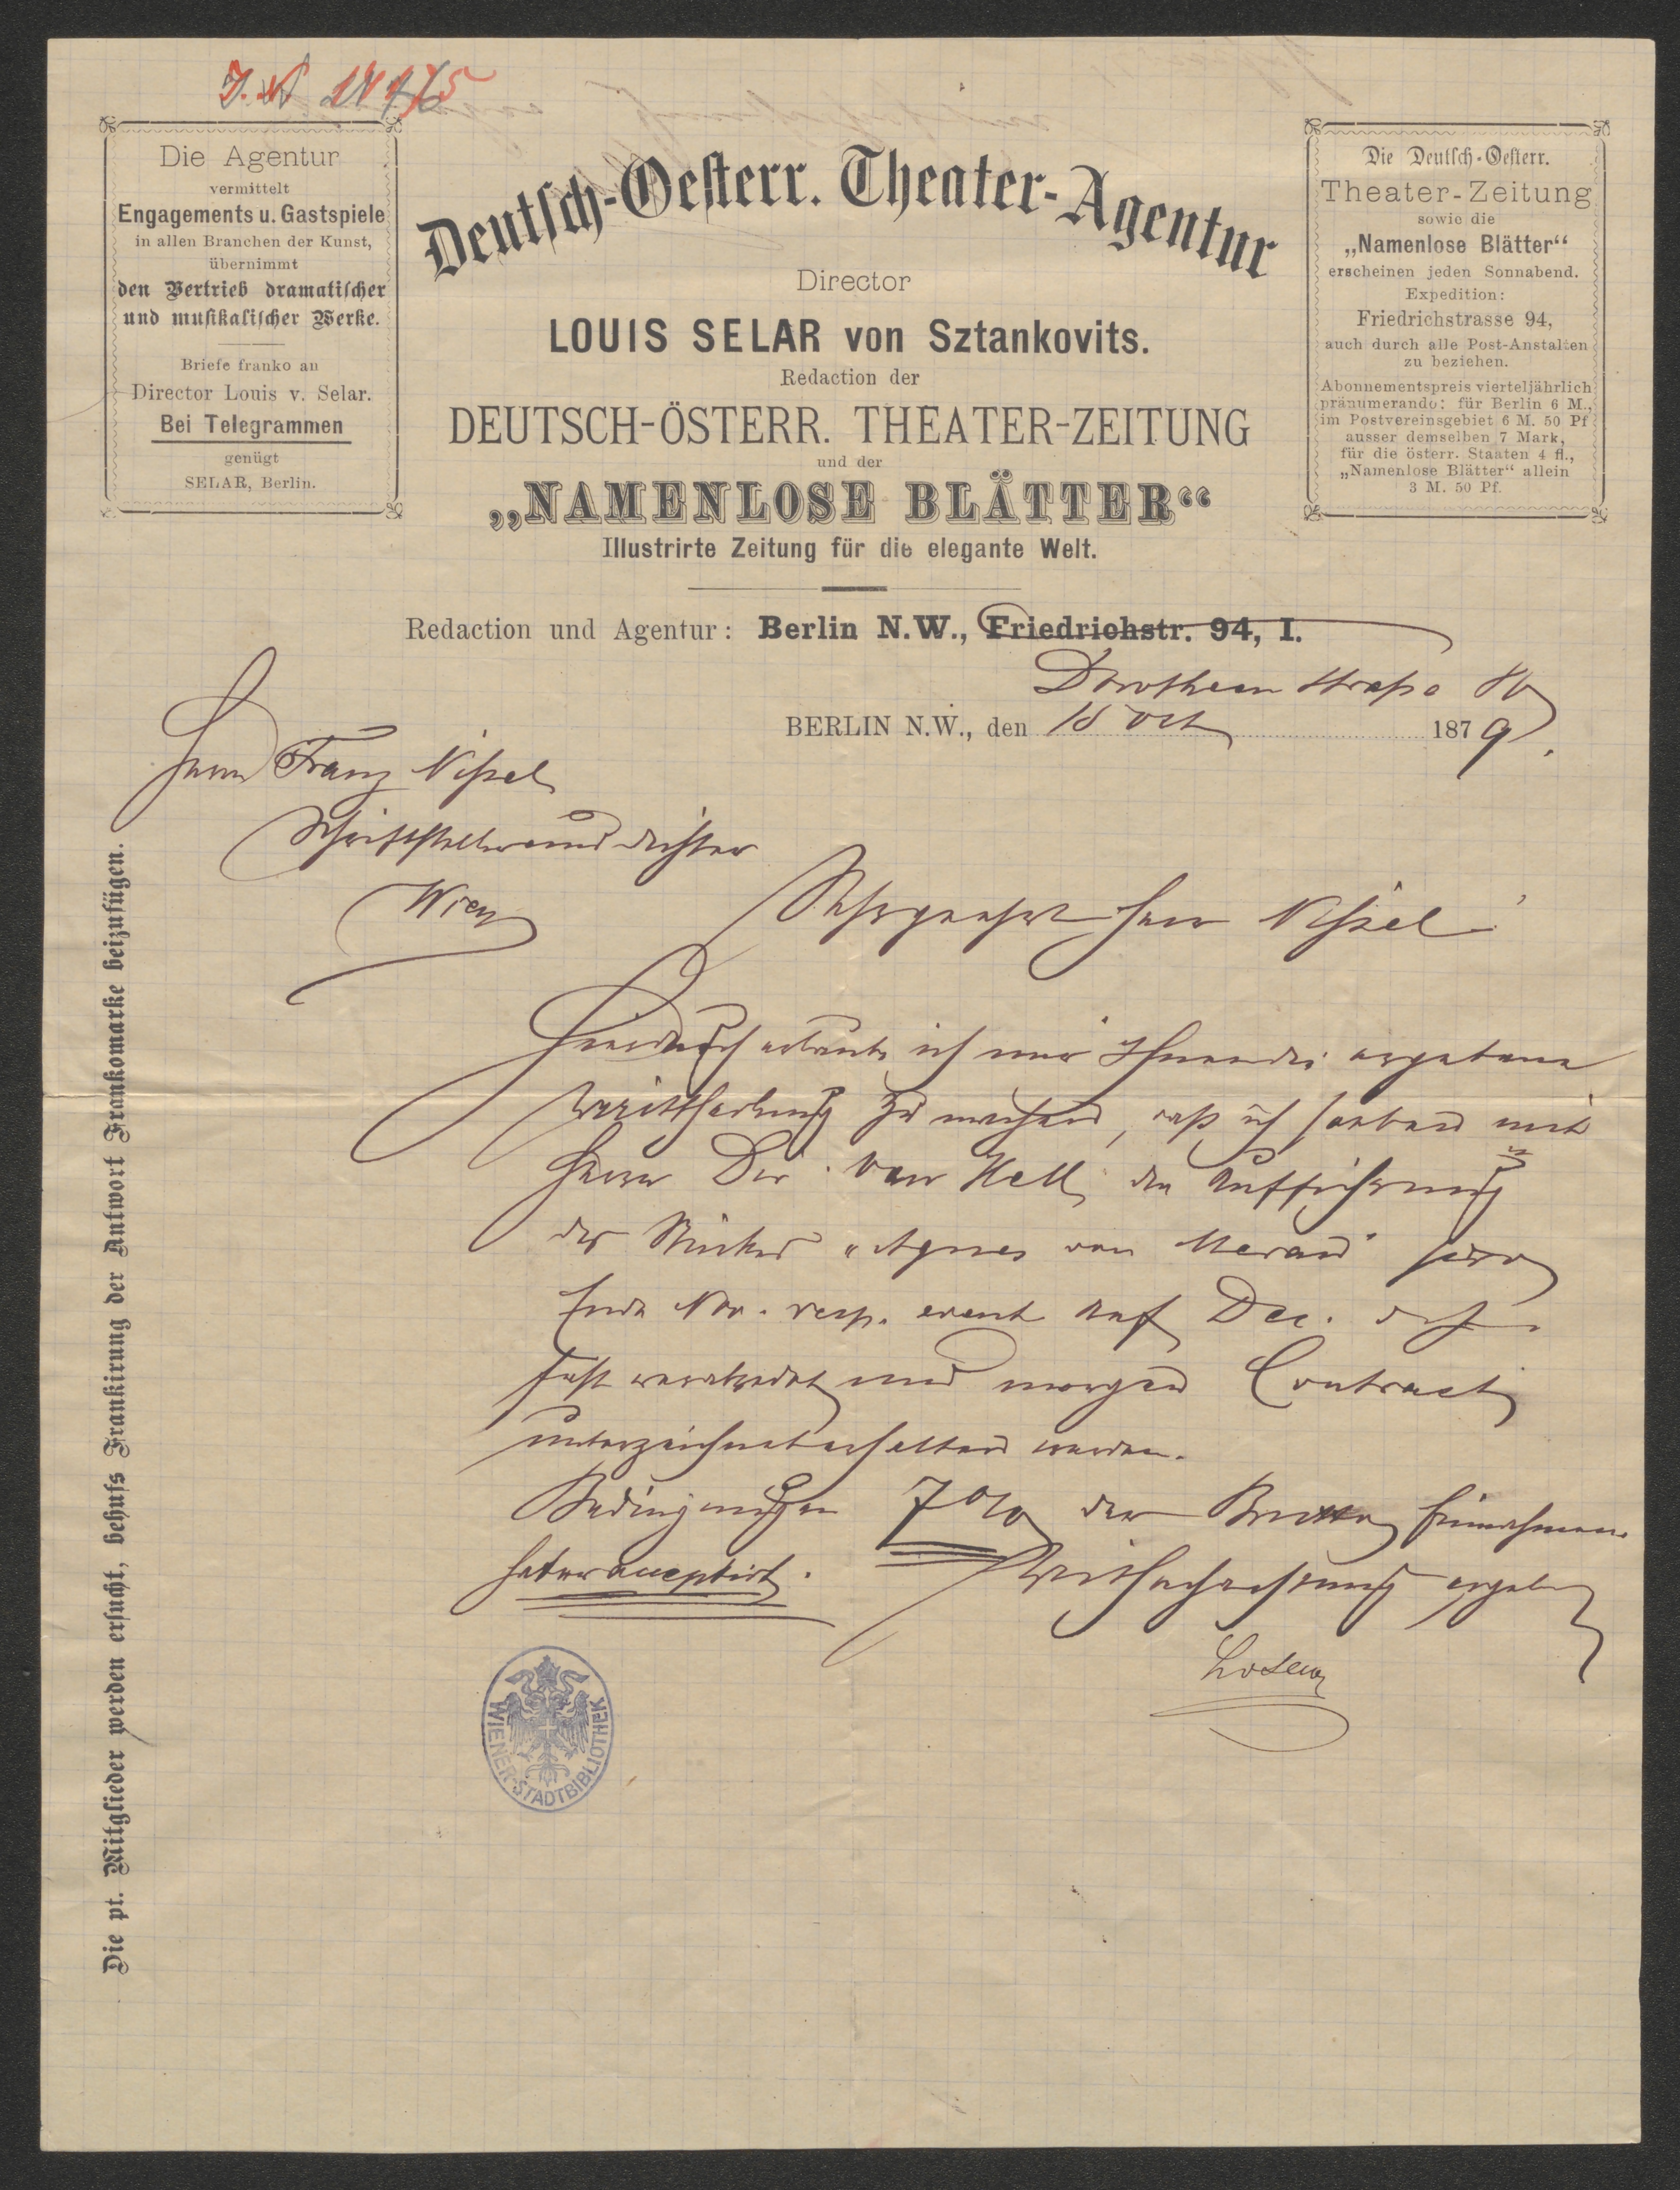 J. N. 
Die Agentur
vermittelt
Engagements u. Gastspiele
in allen Branchen der Kunst,
übernimmt
den Vertrieb dramatischer
und musikalischer Werke.
Briefe franko an
Director Louis v. Selar.
Bei Telegrammen
genügt
SELAR, Berlin.
Deutsch-Oesterr. Theater-Agentur
Director
LOUIS SELAR von Sztankovits.
Redaction der
DEUTSCH-ÖSTERR. THEATER-ZEITUNG
und der
„NAMENLOSE BLÄTTER“
Illustrirte Zeitung für die elegante Welt.
Die Deutsch-Oesterr.
Theater-Zeitung
sowie die
„Namenlose Blätter“
erscheinen jeden Sonnabend.
Expedition:
Friedrichstrasse 94,
auch durch alle Post-Anstalten
zu beziehen.
Abonnementspreis vierteljährlich
pränumerando: für Berlin 6 M.,
im Postvereinsgebiet 6 M. 50 Pf
ausser demselben 7 Mark,
für die österr. Staaten 4 fl.,
„Namenlose Blätter“ allein
3 M. 50 Pf.
Redaction und Agentur: Berlin N.W., Friedrichstr. 94, I.
Dorotheen Straße
BERLIN N.W., den 18 Oct 1879.
Herrn Franz Nissel
Schriftsteller und Dichter
Wien
Sehrgeehrter Herr Nissel!
Hierdurch erlaube ich mir Ihnen die ergebene
Mittheilung zu machen, daß ich soeben mit
Herrn Dir. van Hell die Aufführung
des Stückes „Agnes von Meran“
Ende Nov. resp. event auf Dec.
fest verabredet und morgen Contract
unterzeichnet erhalten werde.
Bedingungen 7% der Brutto Einnahmen.
habe acceptirt. Mit Hochachtung ergeben
LvSelar
WIENER-STADTBIBLIOTHEK
Die pt. Mitglieder werden ersucht, behufs Frankirung der Antwort Frankomarke beizufügen.